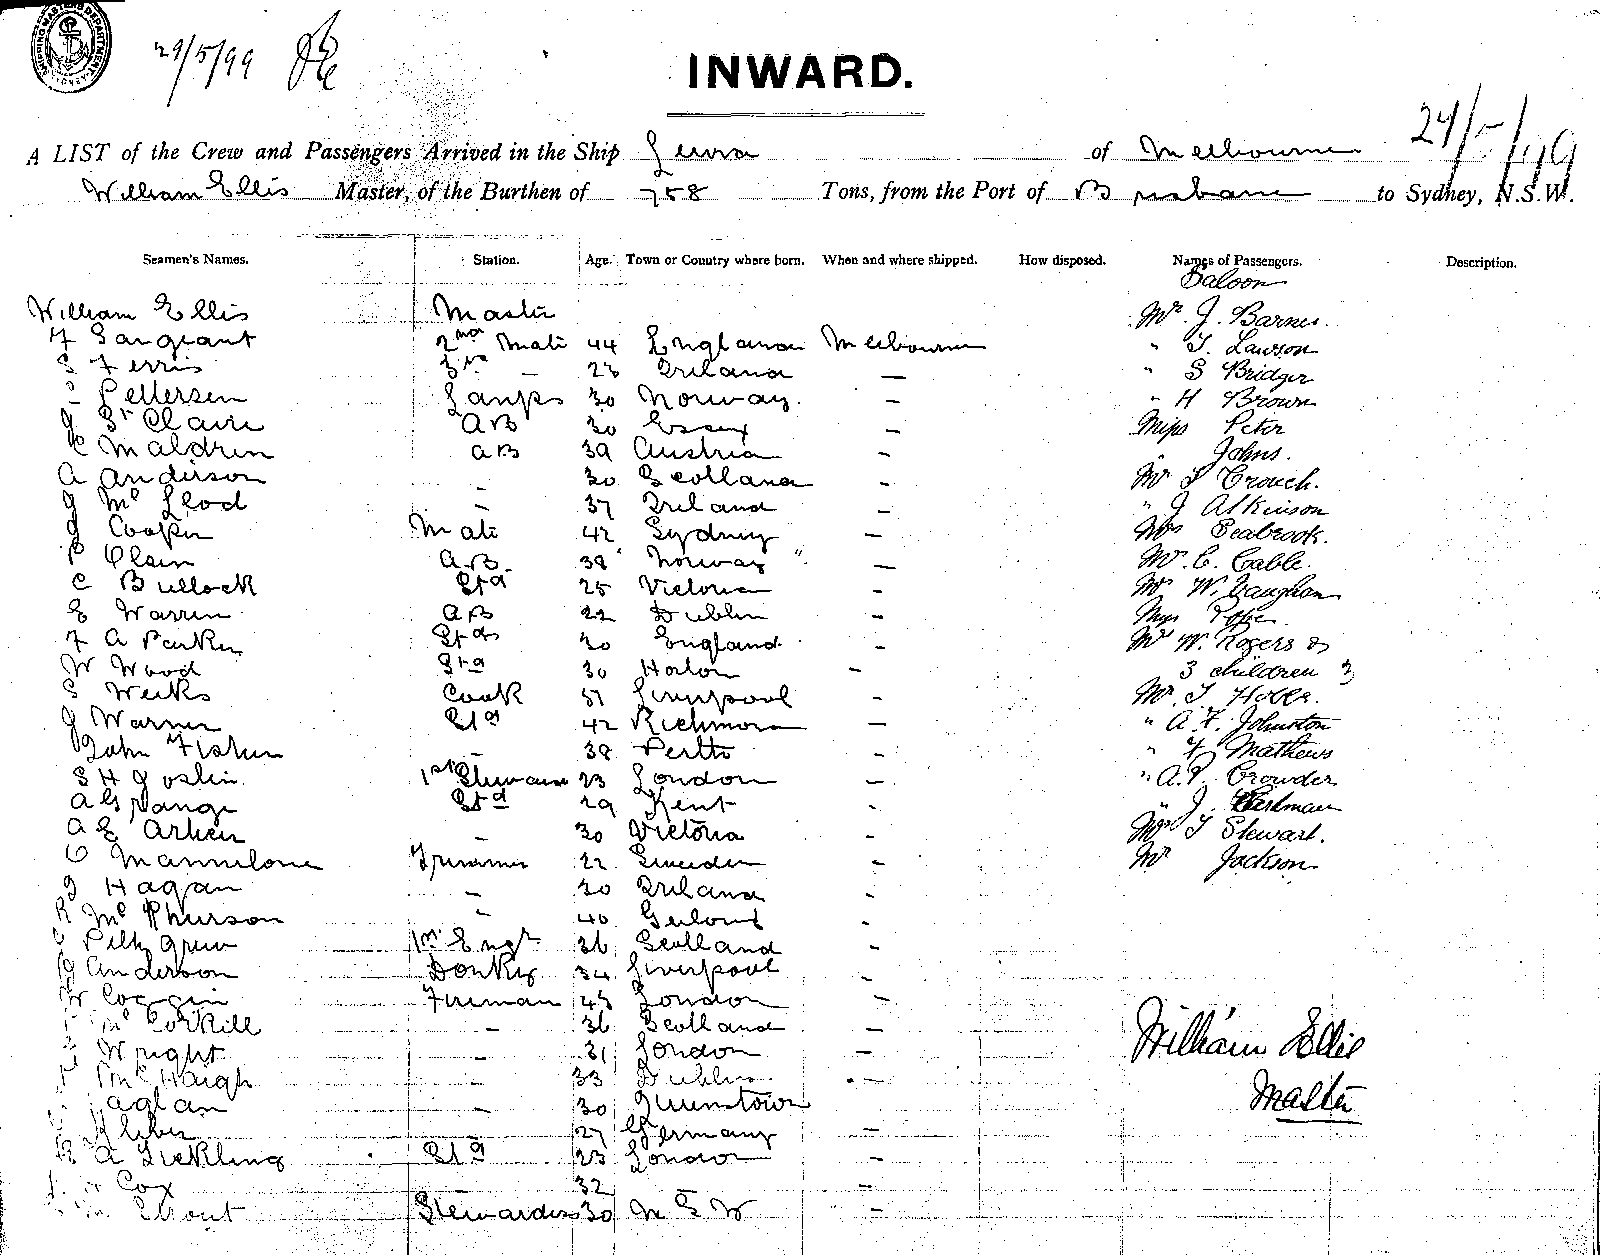 29/5/99
INWARD.
24/5/99
A LIST of the Crew and Passengers Arrived in the Ship Leura of Melbourne
William Ellis Master, of the Burthen of 758 Tons, from the Port of Brisbane to Sydney, N.S.W.
Seamen's Names. Station. Age. Town or Country where born. When and where shipped. How disposed. Names of Passengers. Description.
Saloon
William Ellis Master Mr J. Barnes.
F Sargeant 2nd Mate 44 England Melbourne " T. Lawson
S Ferris 3rd - 23 Ireland — " S Bridger
Pettersen Lamps 30 Norway. — " H Brown
J St Clair AB 30 Essex — Miss Peter
Maldren AB 39 Austria — " Johns.
A Anderson - 30 Scotland — Mr Crouch.
J McLeod - 37 Ireland — " J Atkinson
J Cooper Mate 42 Sydney — Mrs Seabrook.
P Olsen A.B. 38 Norway — Mr. C. Cable.
C Bullock Std 25 Victoria - Mr W. Vaughan
E Warren AB 22 Dublin - Miss Pope
F A Parker Std 30 England - Mr W. Rogers &
W Wood Std 30 — 3 children 3
S Weeks Cook 51 Liverpool - Mr T
J Warner Std 42 Richmond — " A. F. Johnston
John Fisher - 38 Perth - " F Mathews
S H Joslin 1st Steward 23 London - " A. P. Crowder
A Std 29 Kent - " J.
A E - 30 Victoria - Mr T Stewart.
Fireman 22 Sweden - Mr Jackson
J Hagan - 30 Ireland -
R McPhurson - 40 -
1st Engr 36 Scotland -
J Anderson Donkey 34 Liverpool -
W Coggin Fireman 45 London -
McCorkill - 36 Scotland —
Wright - 31 London —
McHaigh - 33 Dublin —
- 30 Queenstown —
27 Germany —
A Tickling Std 23 London —
Cox 32 —
Strout Stewardess 30 N S W —
William Ellis
Master